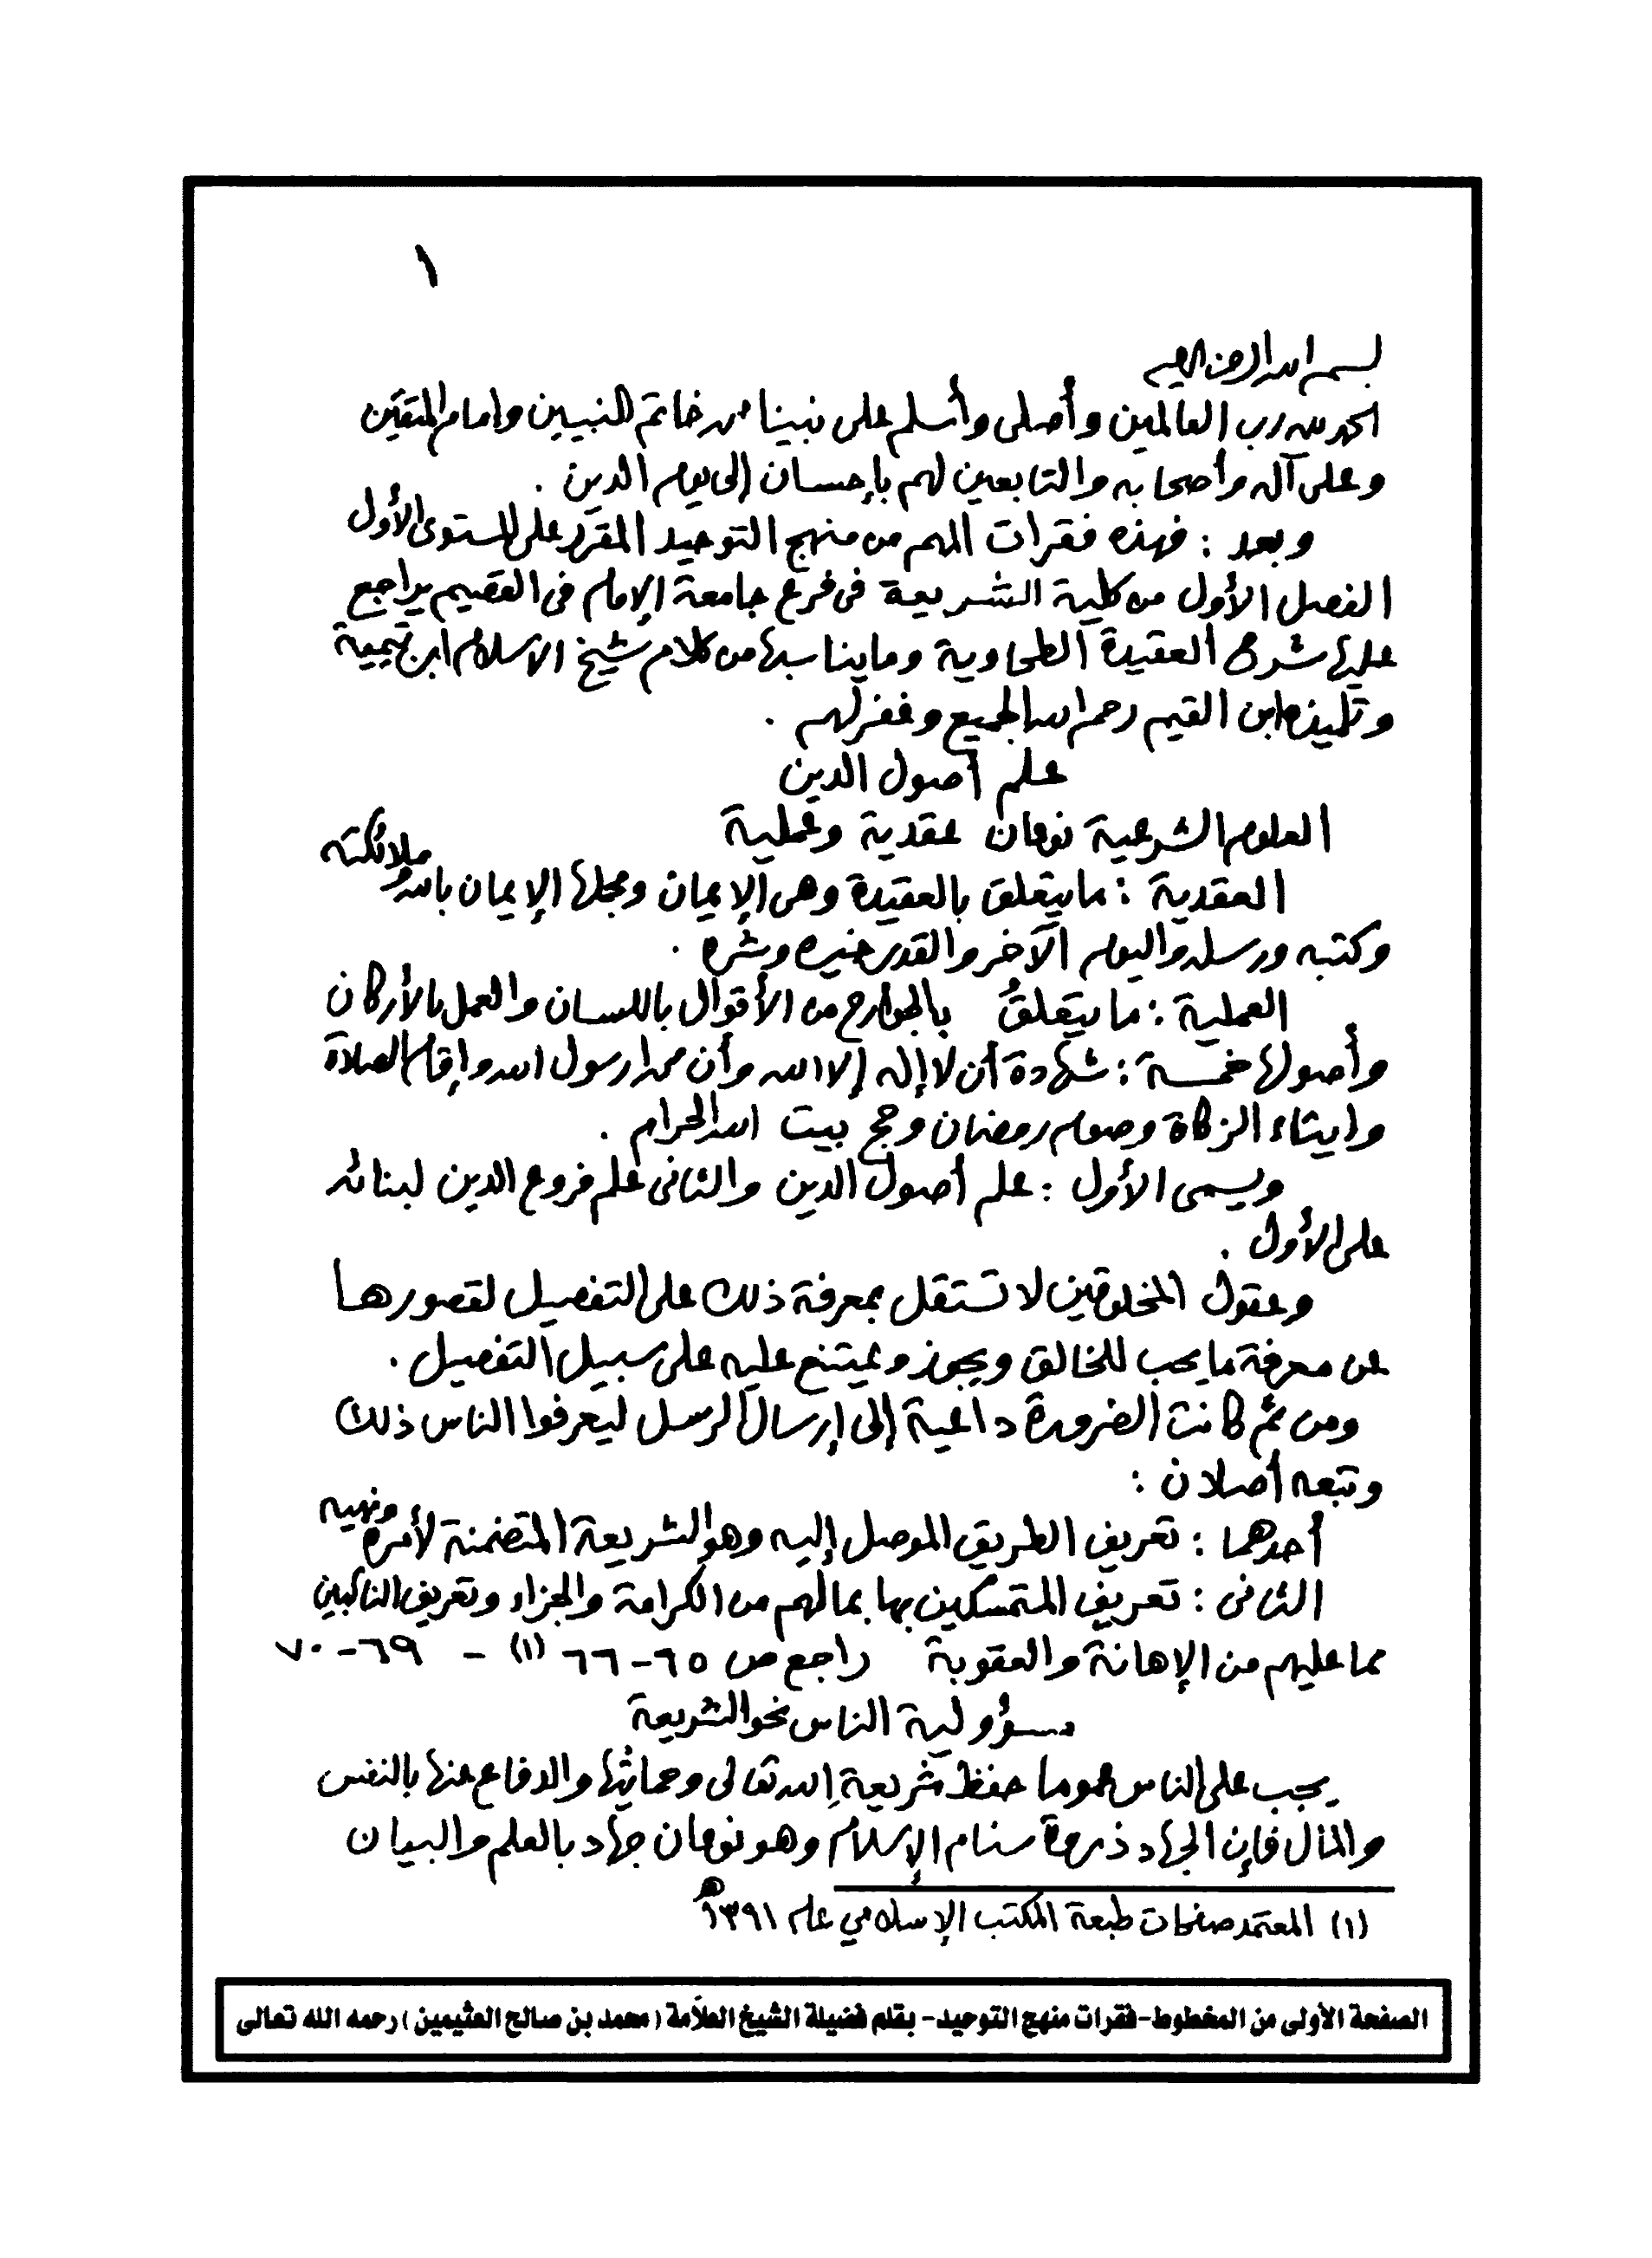 ١
بسم الله الرحمن الرحيم
الحمد لله رب العالمين وأصلي وأسلم على نبينا محمد خاتم النبيين وإمام المتقين
وعلى آله وأصحابه والتابعين لهم بإحسان إلى يوم الدين .
وبعد : فهذه فقرات المهم من منهج التوحيد المقرر على المستوى الأول
الفصل الأول من كلية الشريعة في فرع جامعة الإمام في القصيم يراجع
عليها شرح العقيدة الطحاوية وما يناسبها من كلام شيخ الاسلام ابن تيمية
وتلميذه ابن القيم رحم الله الجميع وغفر لهم .
علم أصول الدين
العلوم الشرعية نوعان عقدية وعملية
العقدية : ما يتعلق بالعقيدة وهي الإيمان ومجملها الإيمان بالله وملائكته
وكتبه ورسله واليوم الآخر والقدر خيره وشره .
العملية : ما يتعلق بالجوارح من الأقوال باللسان والعمل بالأركان
وأصولها خمسة : شهادة أن لا إله إلا الله وأن محمدا رسول الله وإقام الصلاة
وايتاء الزكاة وصوم رمضان وحج بيت الله الحرام .
ويسمى الأول : علم أصول الدين والثاني علم فروع الدين لبنائه
على الأول .
وعقول المخلوقين لا تستقل بمعرفة ذلك على التفصيل لقصورها
عن معرفة ما يجب للخالق ويجوز ويمتنع عليه على سبيل التفصيل .
ومن ثم كانت الضرورة داعية إلى إرسال الرسل ليعرفوا الناس ذلك
وتبعه أصلان :
أحدهما : تعريف الطريق الموصل إليه وهو الشريعة المتضمنة لأمره ونهيه
الثاني : تعريف المتمسكين بها بما لهم من الكرامة والجزاء وتعريف الناكبين
مما عليهم من الإهانة والعقوبة راجع ص ٦٥-٦٦ (١) - ٦٩-٧٠
مسؤولية الناس نحو الشريعة
يجب على الناس عموما حفظ شريعة الله تعالى وحمايتها والدفاع عنها بالنفس
والمال فإن الجهاد ذروة سنام الإسلام وهو نوعان جهاد بالعلم والبيان
(١) المعتمد صفحات طبعة المكتب الإسلامي عام ١٣٩١ هـ
الصفحة الأولى من المخطوط-فقرات منهج التوحيد- بقلم فضيلة الشيخ العلاّمة ( محمد بن صالح العثيمين ) رحمه الله تعالى